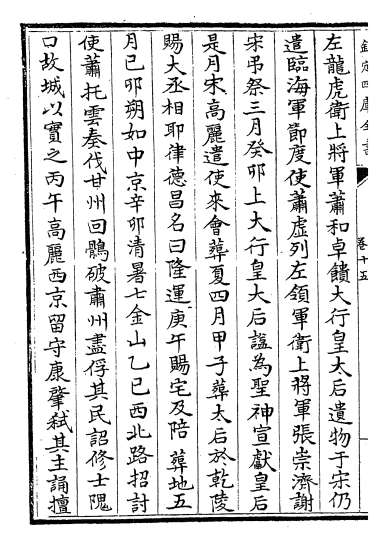 欽定四庫全書
卷十五
左龍虎衛上將軍蕭和卓饋大行皇太后遺物于宋仍
遣臨海軍節度使蕭虛列左領軍衛上將軍張崇濟謝
宋弔祭三月癸卯上大行皇太后諡為聖神宣獻皇后
是月宋高麗遣使來會葬夏四月甲子葬太后於乾陵
賜大丞相耶律德昌名曰隆運庚午賜宅及陪葬地五
月己卯朔如中京辛卯清暑七金山乙巳西北路招討
使蕭托雲奏伐甘州回鶻破肅州盡俘其民詔修土隗
口故城以實之丙午高麗西京留守康肇弒其主誦擅